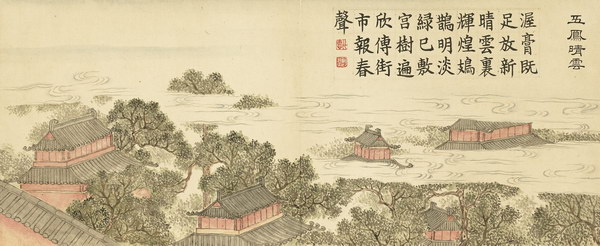 五鳳晴雲
渥膏既
足放新
晴雲裏
輝煌鳷
鵲明淡
綠已敷
宮樹遍
欣傳街
市報春
聲